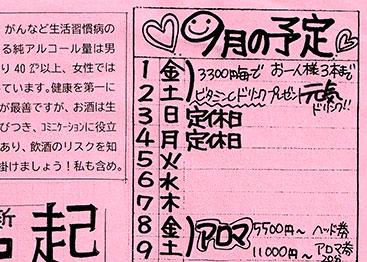 がんなど生活習慣病の
る純アルコール量は男
り40㌘以上、女性では
ています。健康を第一に
が最善ですが、お酒は生
びつき、コミニケーションに役立
あり、飲酒のリスクを知
掛けましょう！私も含め。
起
9月の予定
1 金 3300円毎で お一人様3本まで
2 土 ビタミンCドリンクプレゼント 元気ドリンク!!
3 日 定休日
4 月 定休日
5 火
6 水
7 木
8 金 アロマ 5500円〜 ヘッド券
9 土 11000円〜 アロマ券